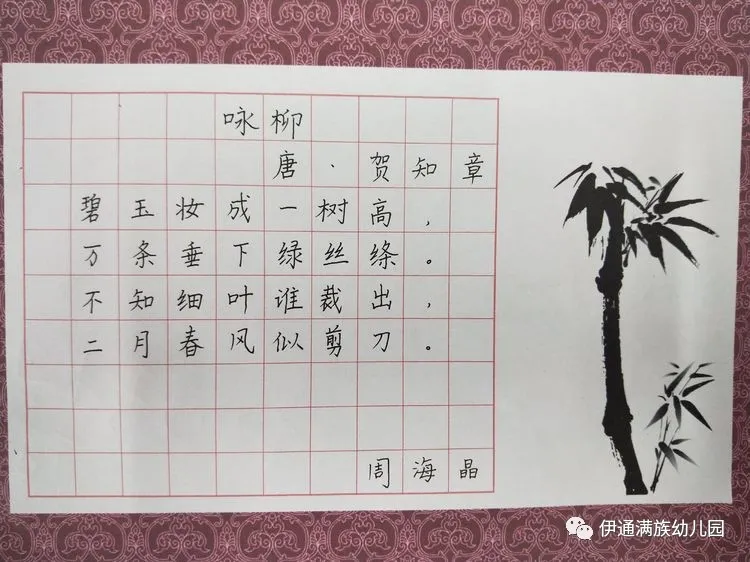 咏柳
唐·贺知章
碧玉妆成一树高，
万条垂下绿丝绦。
不知细叶谁裁出，
二月春风似剪刀。
周海晶
伊通满族幼儿园